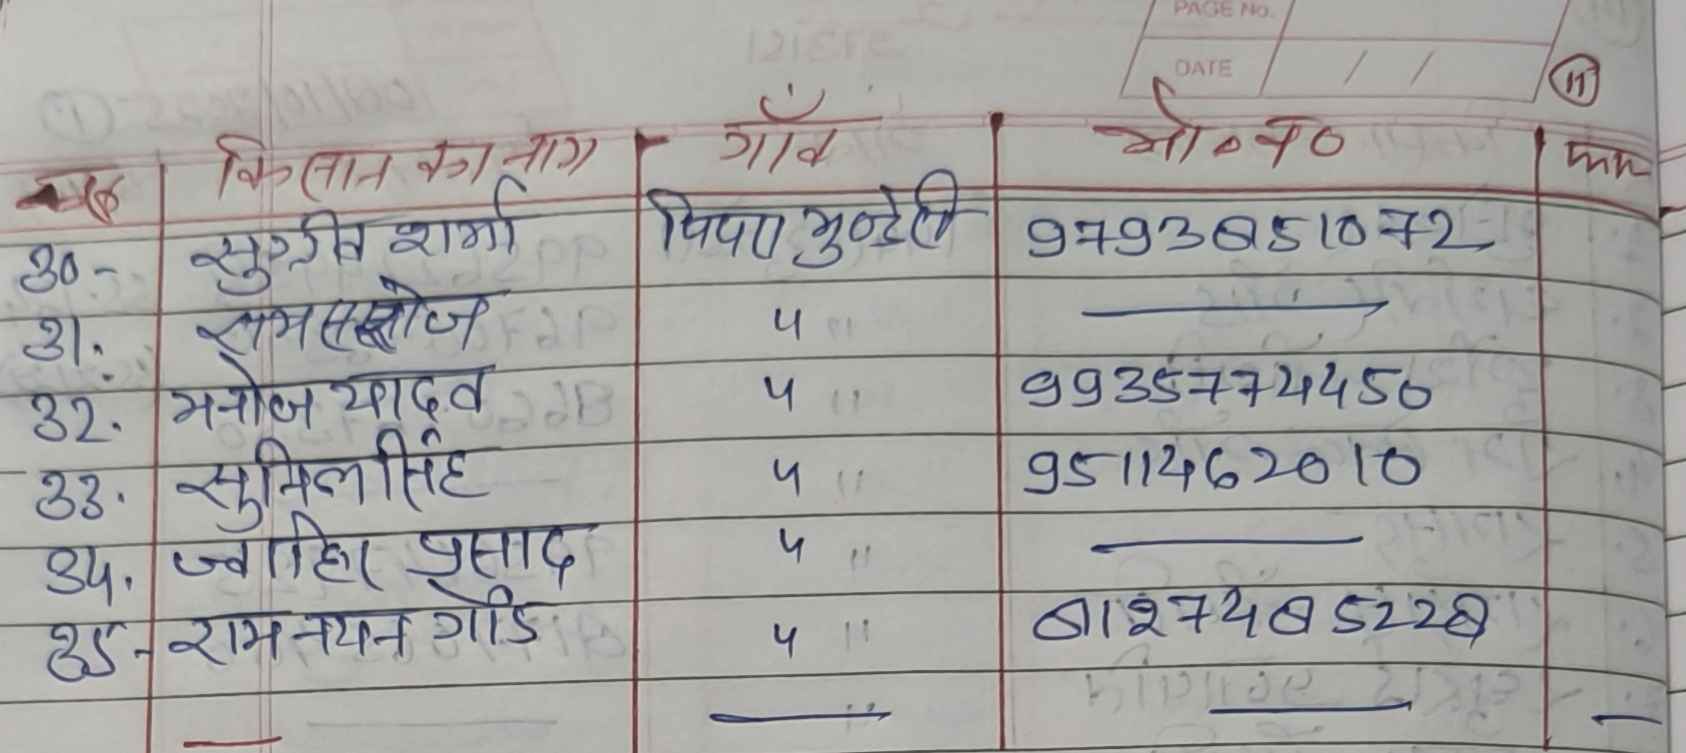 PAGE No.
DATE / /
11
किसान का नाम गाँव मो० न०
30- सुग्रीव शर्मा पिपरा मुण्डेली 9793851072
31. राम सरोज " —
32. मनोज यादव " 9935774450
33. सुनिल सिंह " 9511462010
34. ज्वाहिर प्रसाद " —
35- राम नयन गोंड " 8127485228